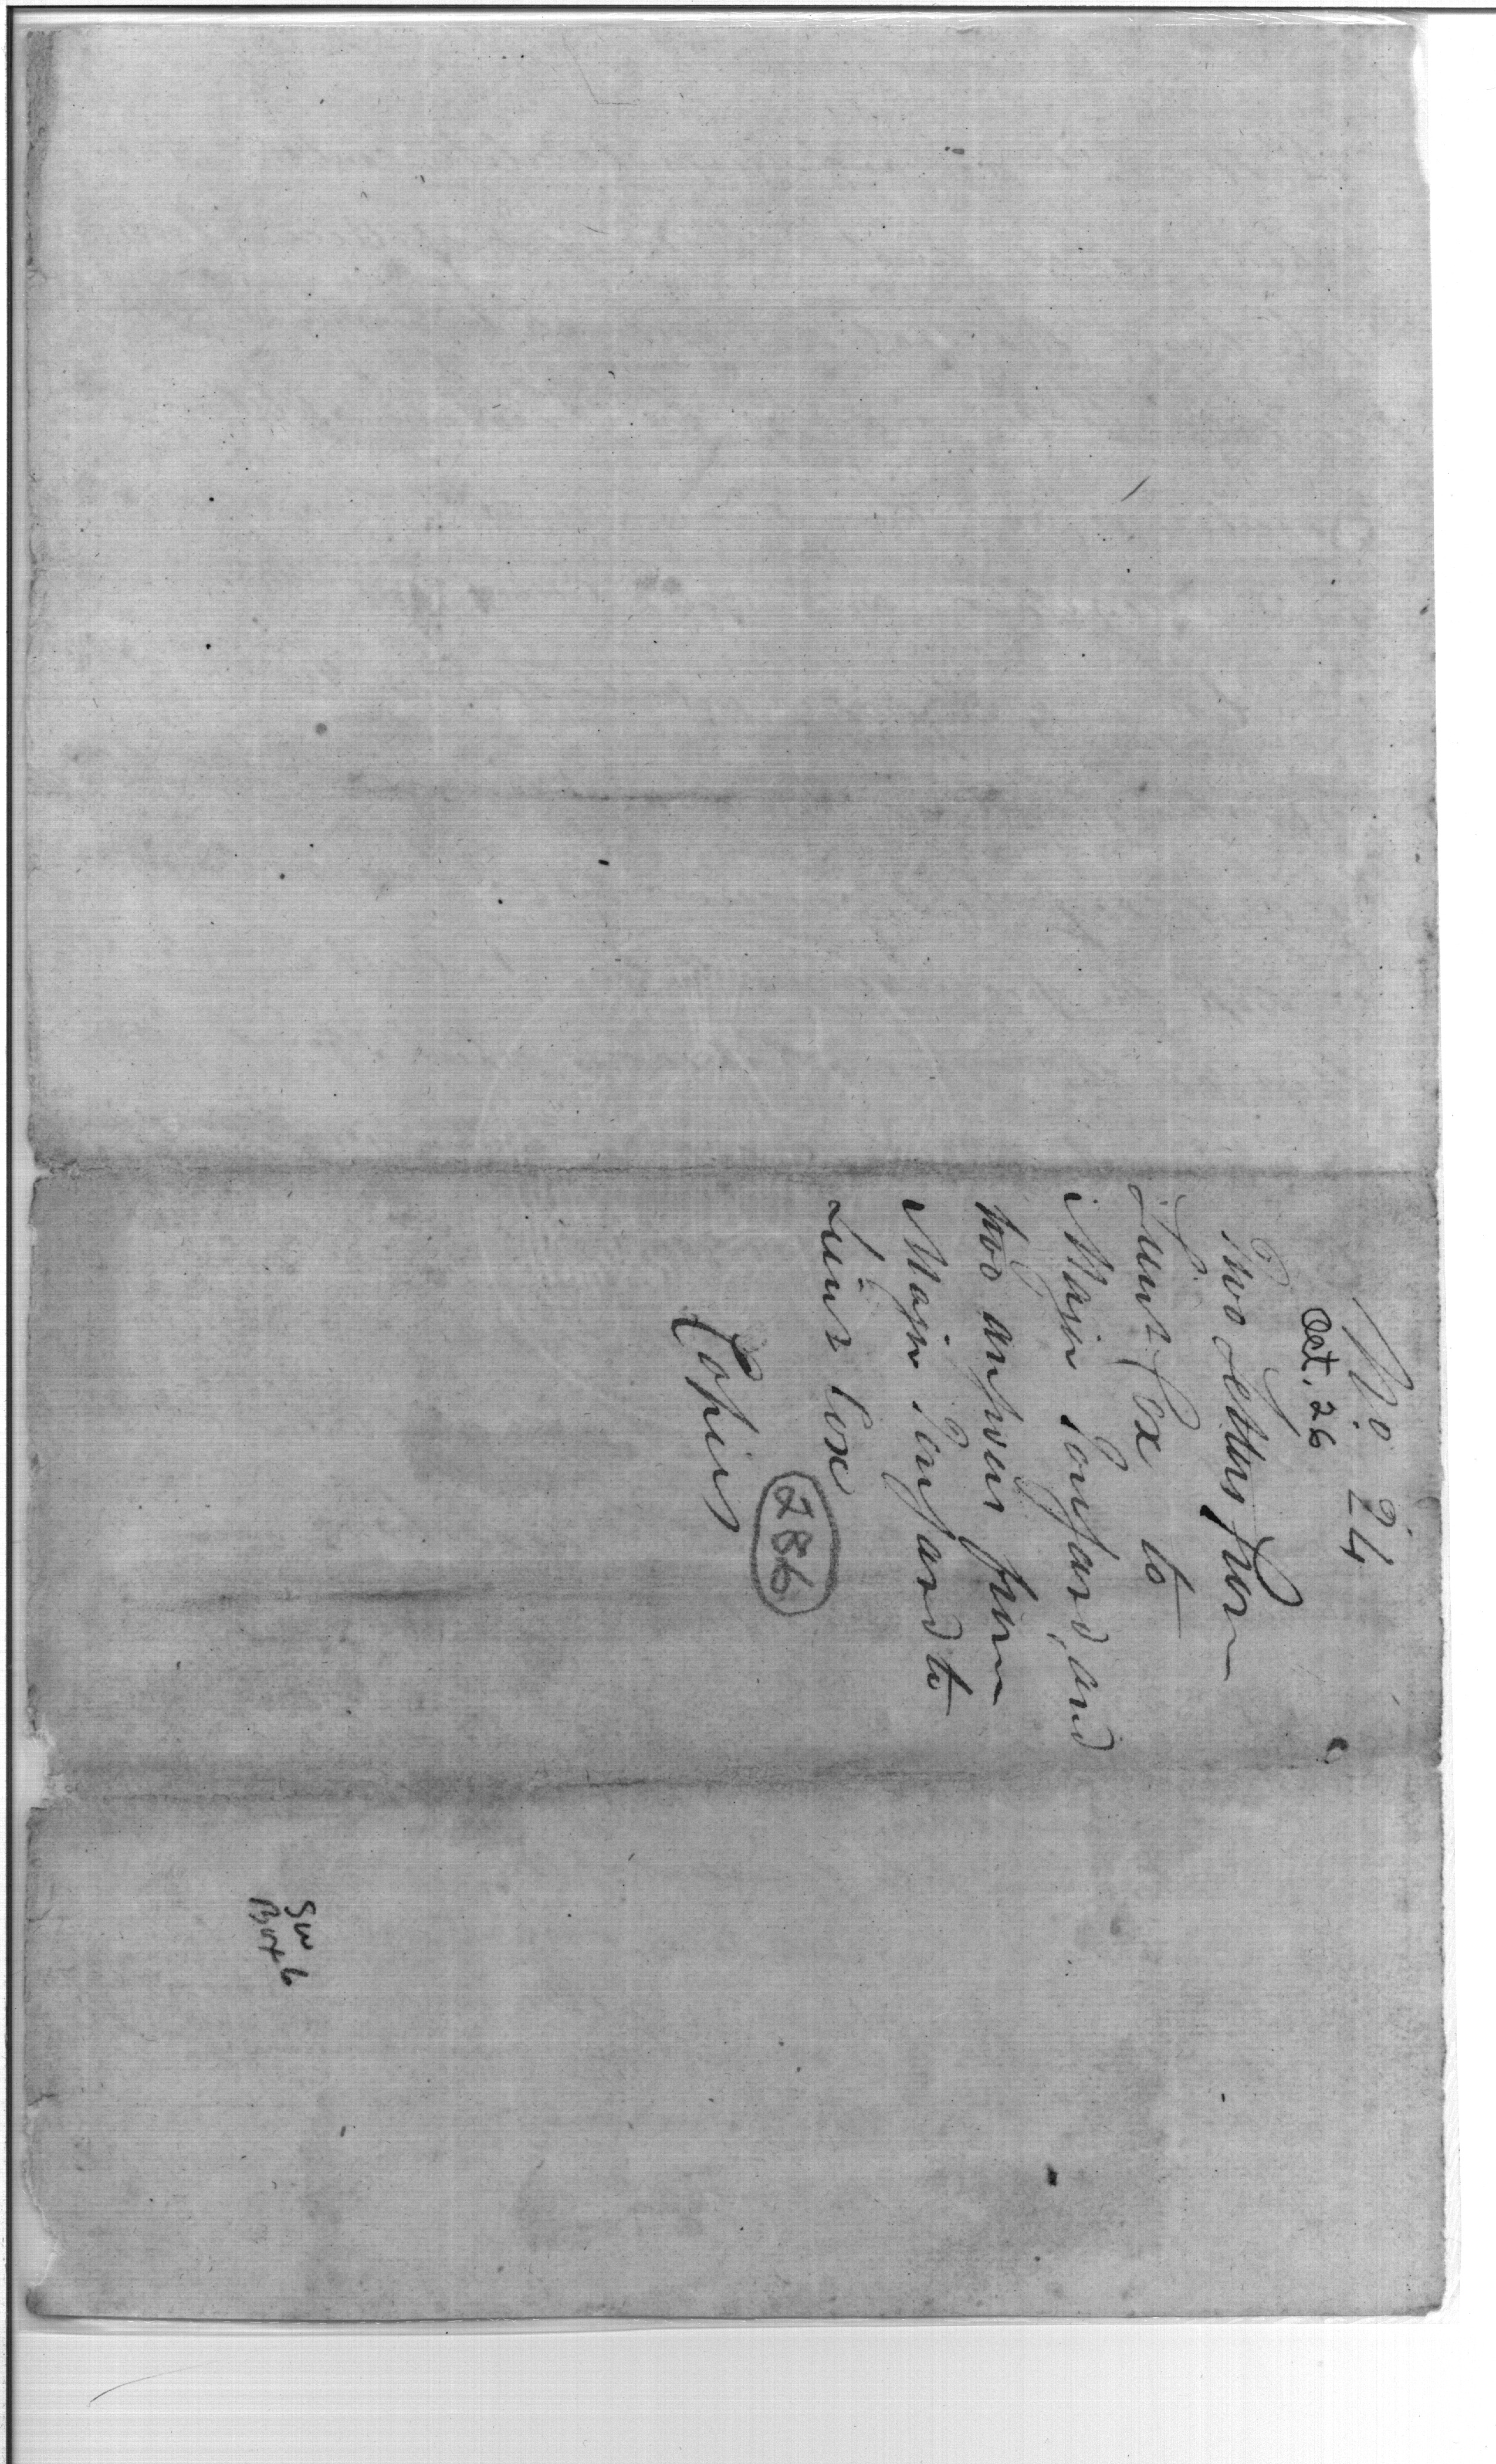 No 24
Oct. 26
Two Letters from
Lieut Cox to
Major Ponsard, and
two answers from
Major Ponsard to
Lieut Cox
286
Copies
SW
Box 6